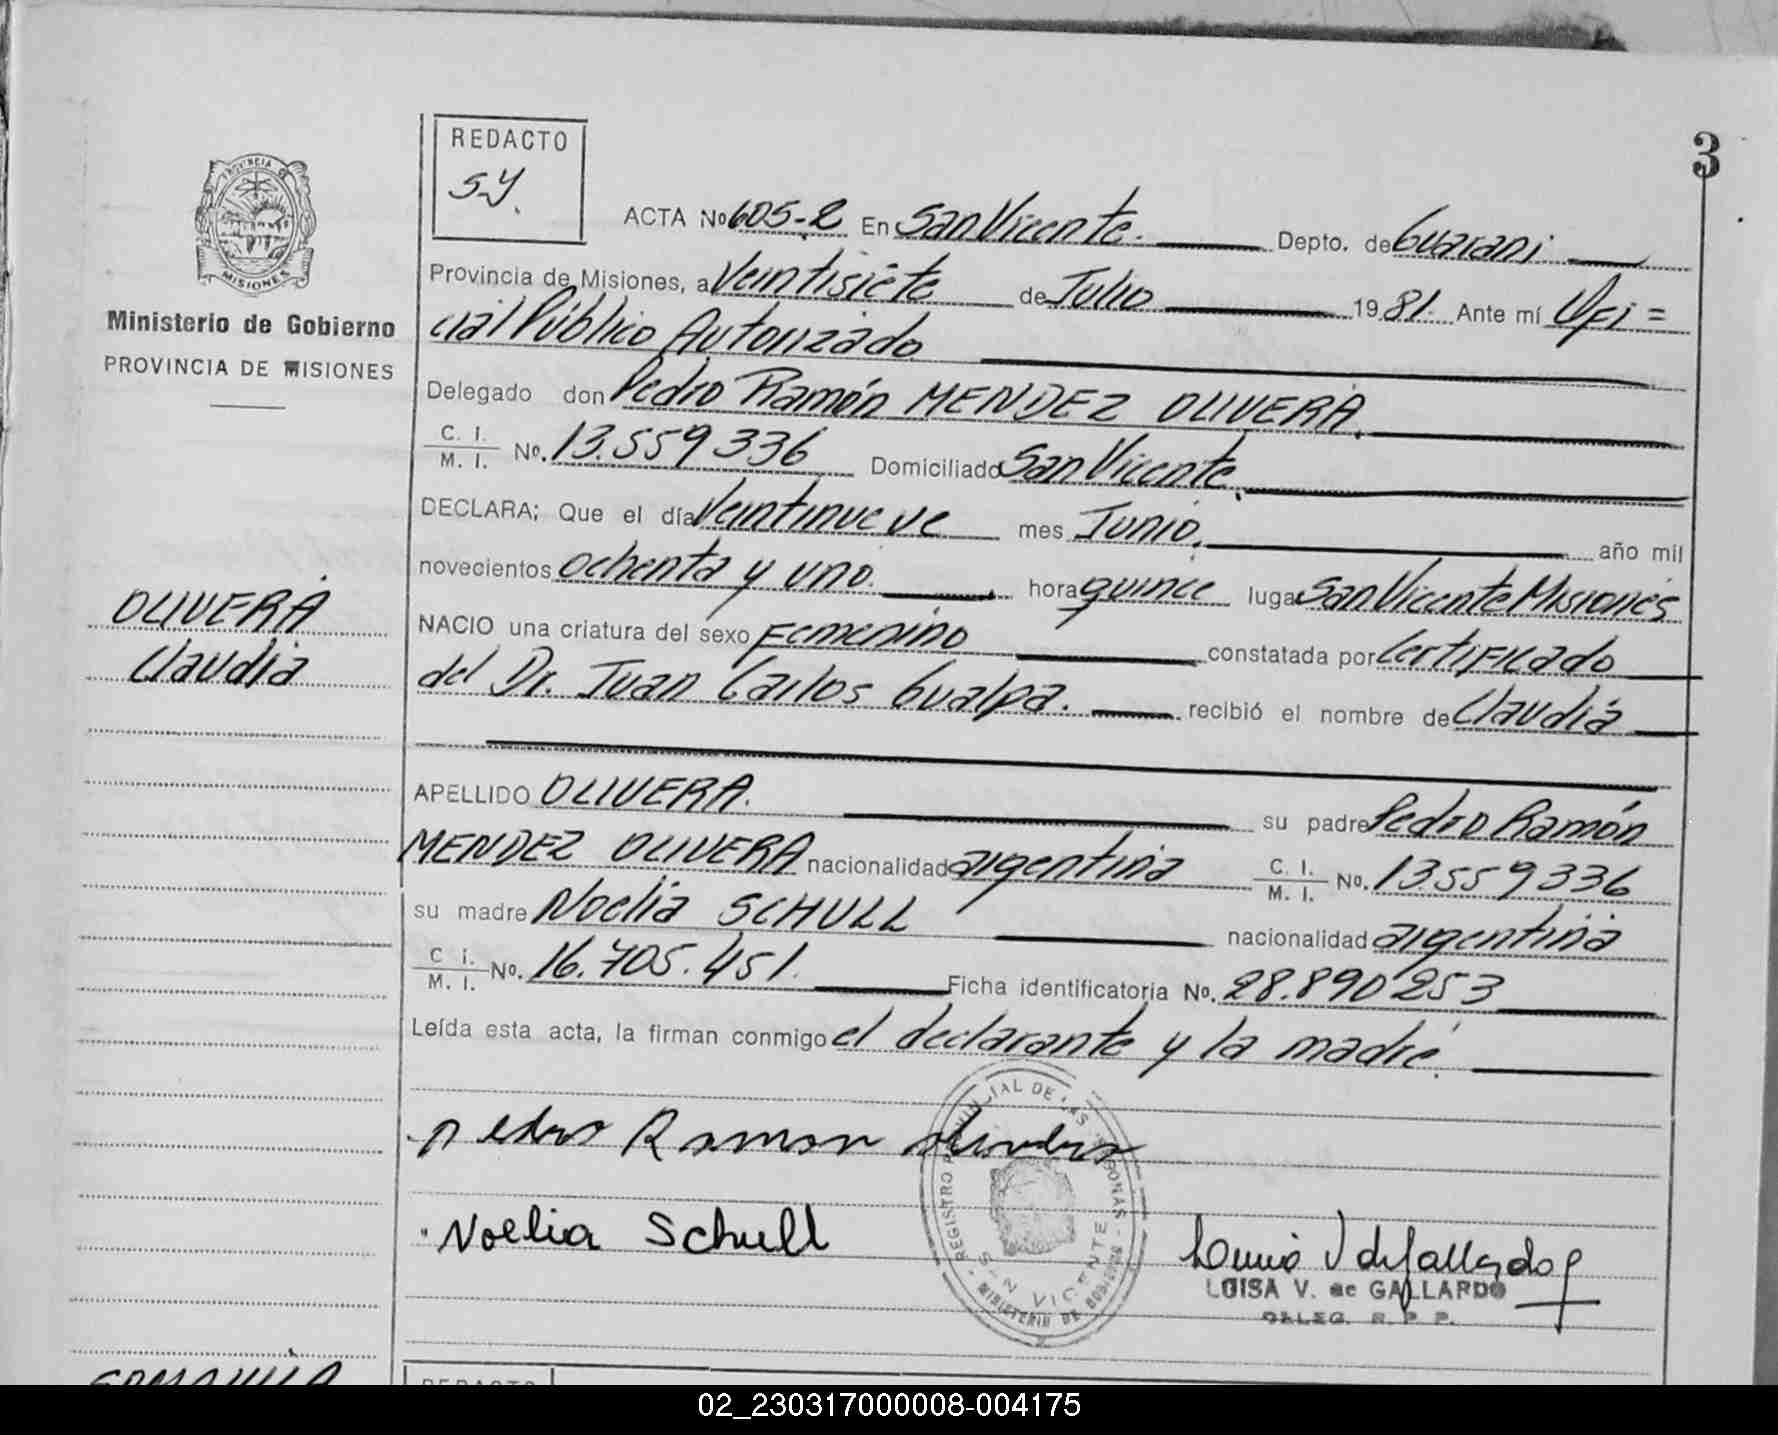 3
REDACTO
SY.
PROVINCIA
MISIONES
Ministerio de Gobierno
PROVINCIA DE MISIONES
OLIVERA
Claudia
ACTA Nº 605-2 En San Vicente. Depto. de Guarani
Provincia de Misiones, a Veintisiete de Julio 1981. Ante mí Ofi=
cial Público Autorizado
Delegado don Pedro Ramón MENDEZ OLIVERA.
C. I.
M. I. Nº. 13.559336 Domiciliado San Vicente.
DECLARA; Que el día Veintinueve mes Junio. año mil
novecientos ochenta y uno. hora quince lugar San Vicente Misiones
NACIO una criatura del sexo Femenino constatada por Certificado
del Dr. Juan Carlos Gualpa. recibió el nombre de Claudia
APELLIDO OLIVERA. su padre Pedro Ramón
MENDEZ OLIVERA nacionalidad argentina C. I.
M. I. Nº. 13.559336
su madre Noelia SCHULL nacionalidad argentina
C I.
M. I. Nº. 16.705.451. Ficha identificatoria Nº. 28.890253
Leída esta acta, la firman conmigo el declarante y la madre.
pedro Ramon
Noelia Schull
REGISTRO PROVINCIAL DE LAS PERSONAS - MINISTERIO DE GOBIERNO -
SAN VICENTE
LUISA V. de GALLARDO
DELEG. R. P. P.
REDACTO
02_230317000008-004175